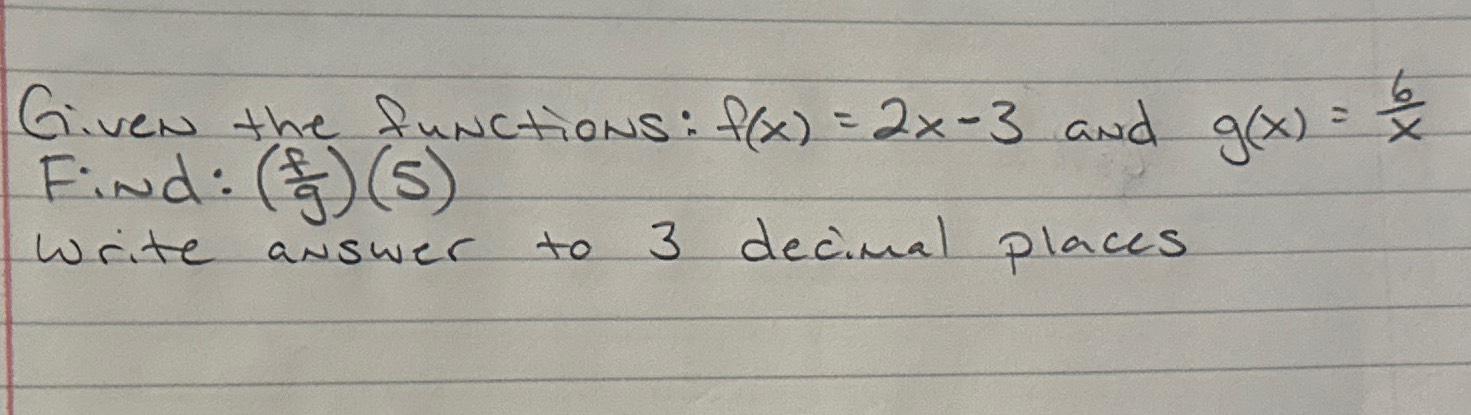 Given the functions: f(x) = 2x - 3 and g(x) = 6/x
Find: (f/g)(5)
Write answer to 3 decimal places